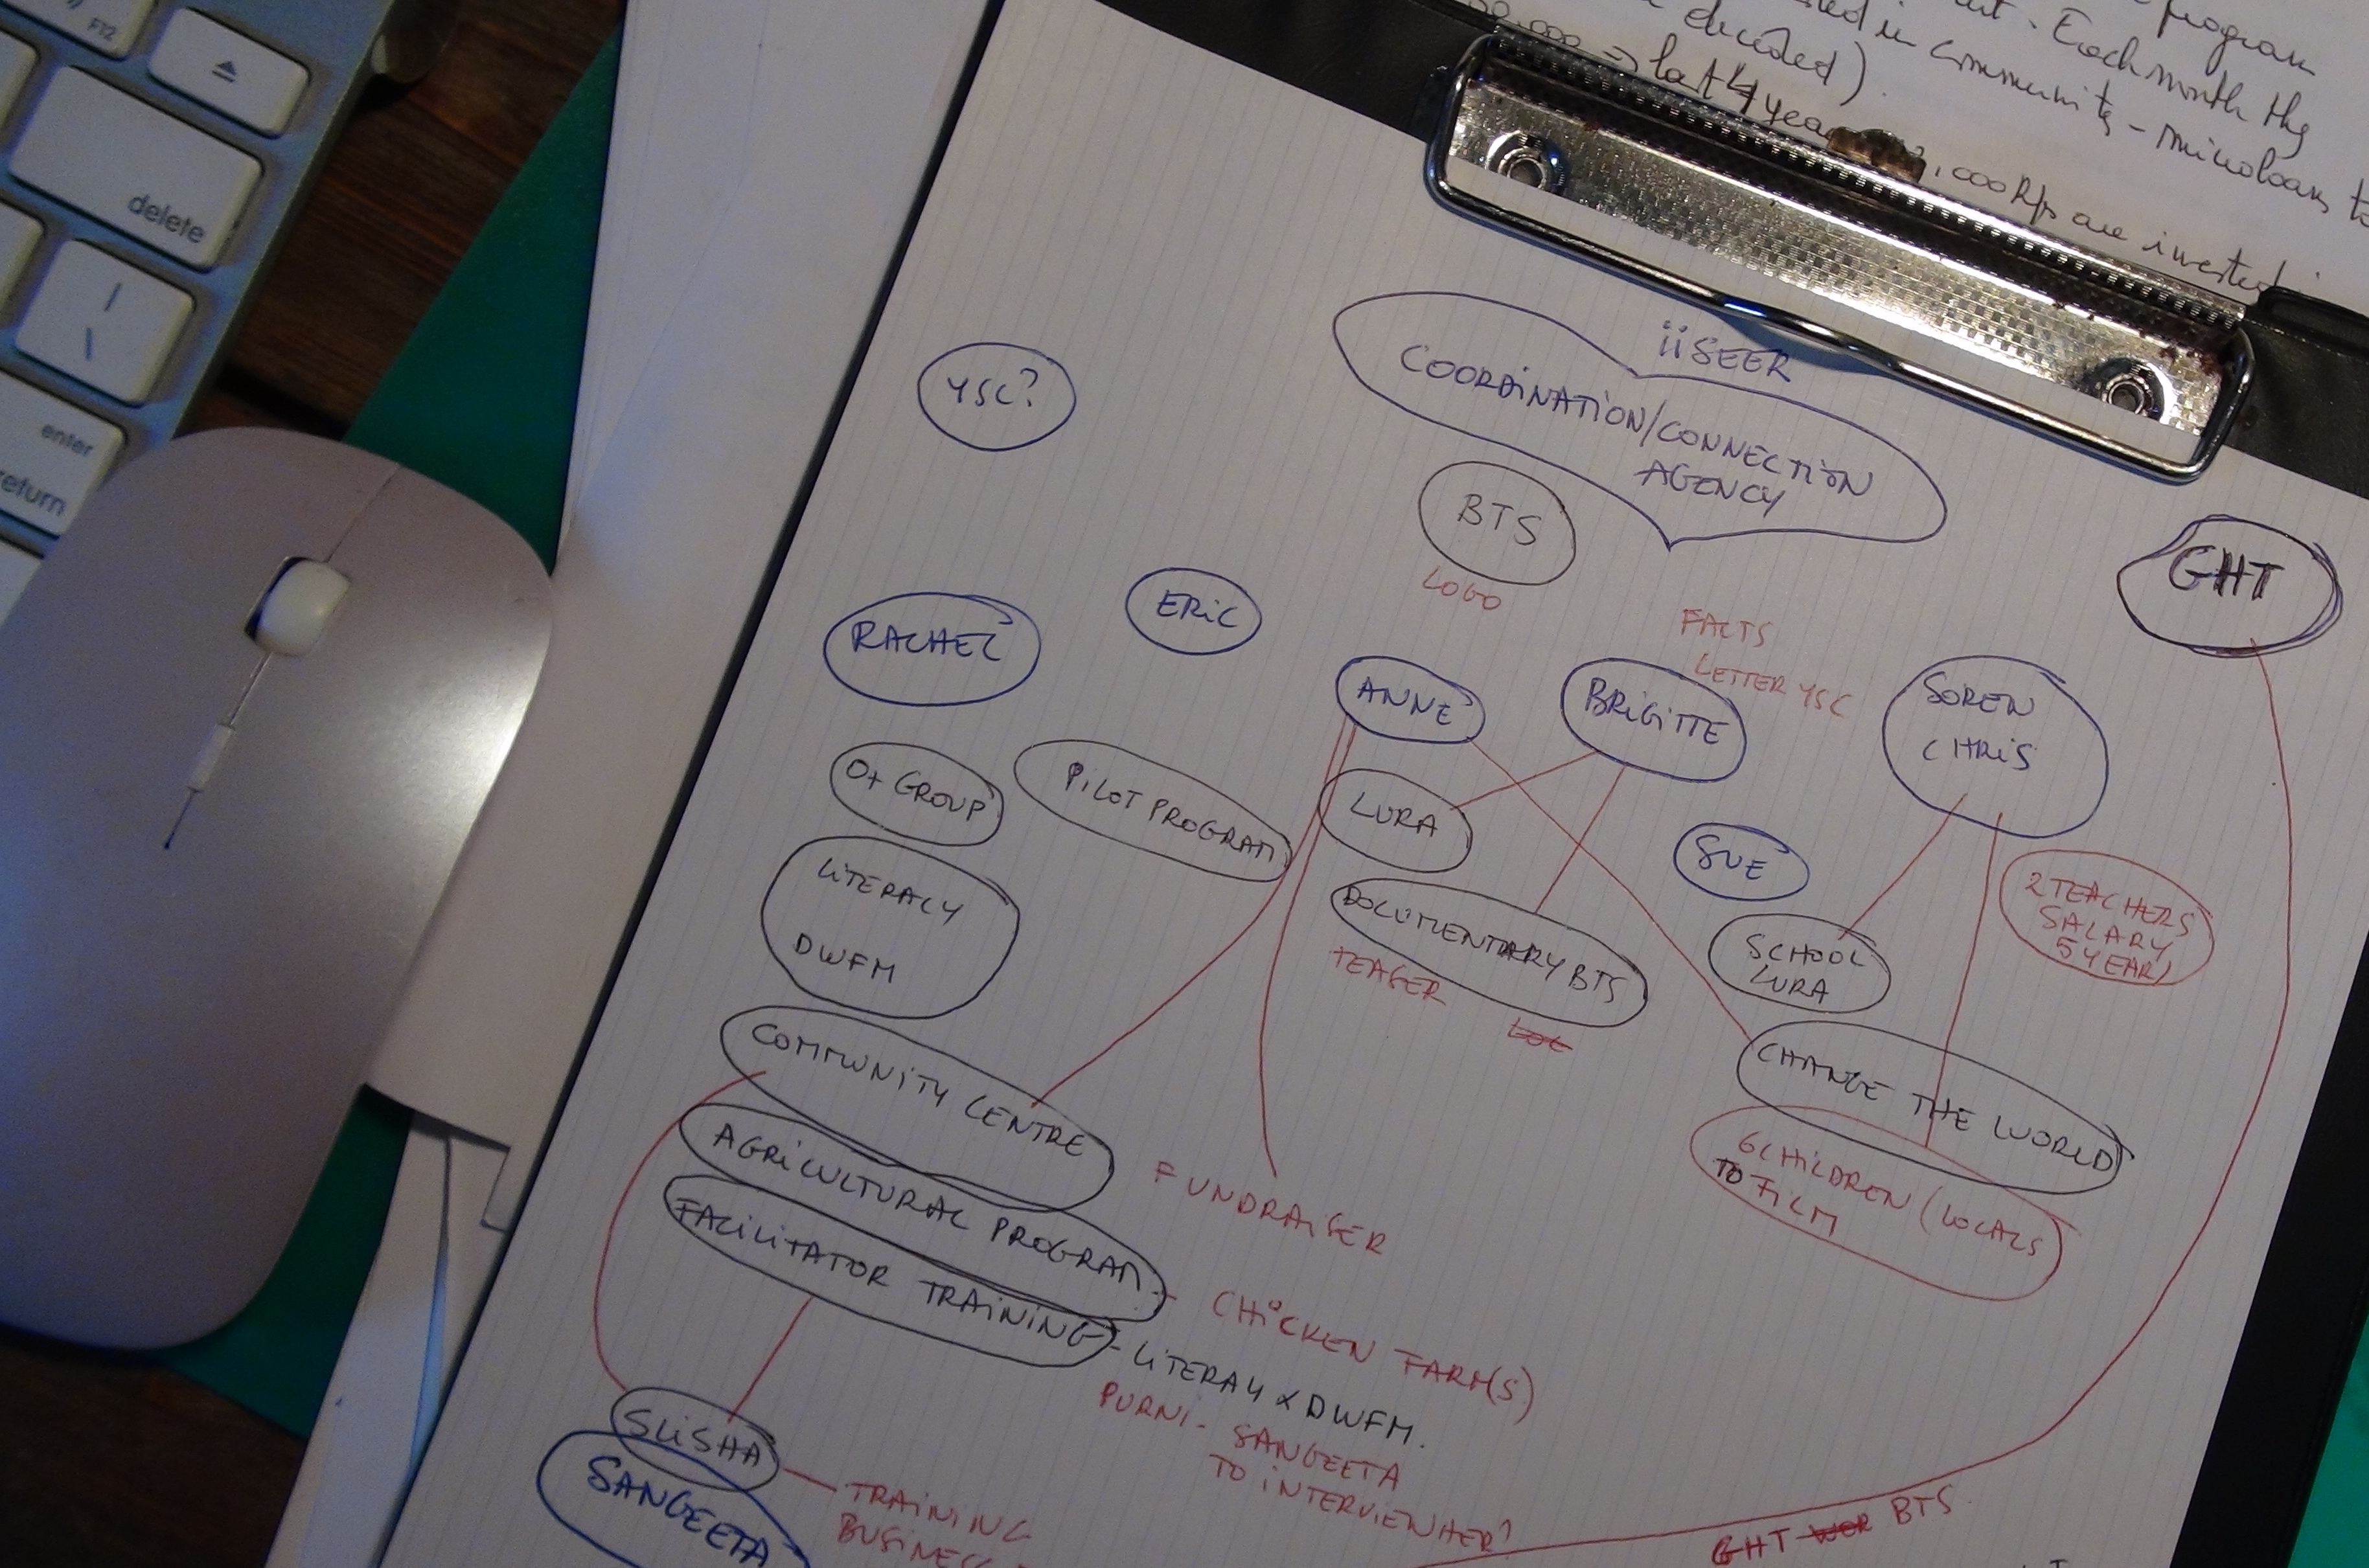 F12
delete
enter
return
program
Each month the
decided)
in community - microloans to
=> last 4 year
,000 Rps are invested
iiSEER
COORDINATION/CONNECTION
AGENCY
YSC?
BTS
LOGO
GHT
RACHEL
ERIC
FACTS
LETTER YSC
ANNE
BRIGITTE
SOREN
CHRIS
O+ GROUP
PILOT PROGRAM
LURA
SUE
2 TEACHERS
SALARY
5 YEAR)
LITERACY
DWFM
DOCUMENTARY BTS
TEASER
SCHOOL
LURA
COMMUNITY CENTRE
CHANGE THE WORLD
6 CHILDREN (LOCALS
TO FILM
AGRICULTURAL PROGRAM
FUNDRAISER
FACILITATOR TRAINING
- CHICKEN FARM(S)
- LITERAY & DWFM.
PURNI - SANGEETA
TO INTERVIEW HER?
SLISHA
SANGEETA
TRAINING
BUSINESS
GHT BTS